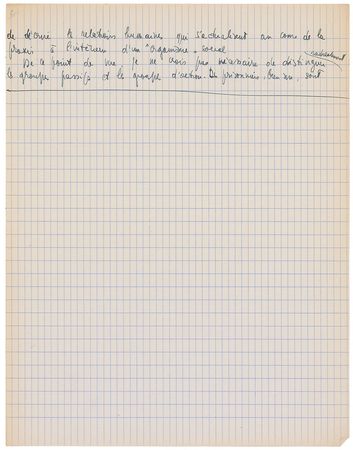 de décrire les relations humaines qui s'actualisent au cours de la
praxis à l'intérieur d'un "organisme" social.
radicalement
De ce point de vue, je ne crois pas nécessaire de distinguer
les groupes passifs et les groupes d'action. Les prisonniers, bien sûr, sont